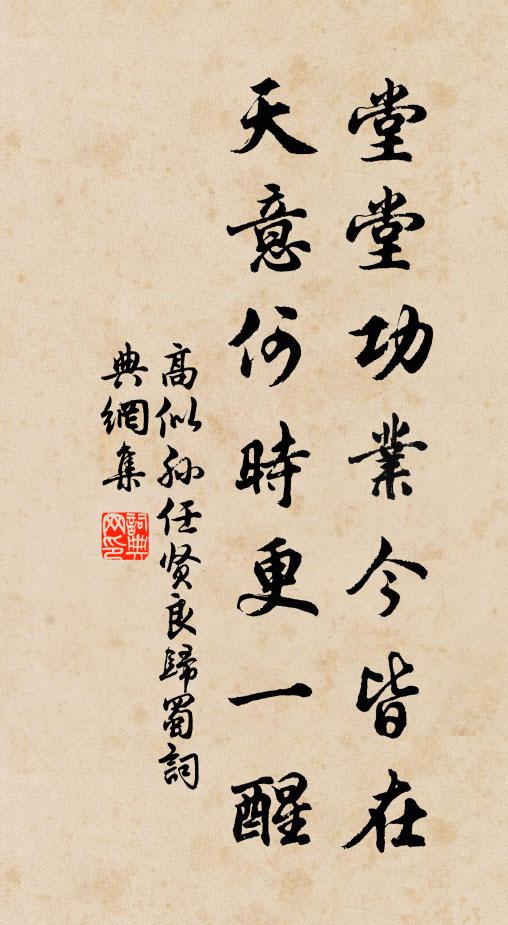 堂堂功業今皆在
天意何時更一醒
高似孙任贤良歸蜀詞
典網集
詞典网印